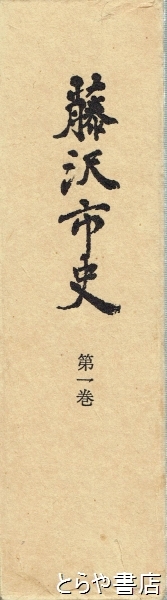 藤沢市史
第一巻
とらや書店